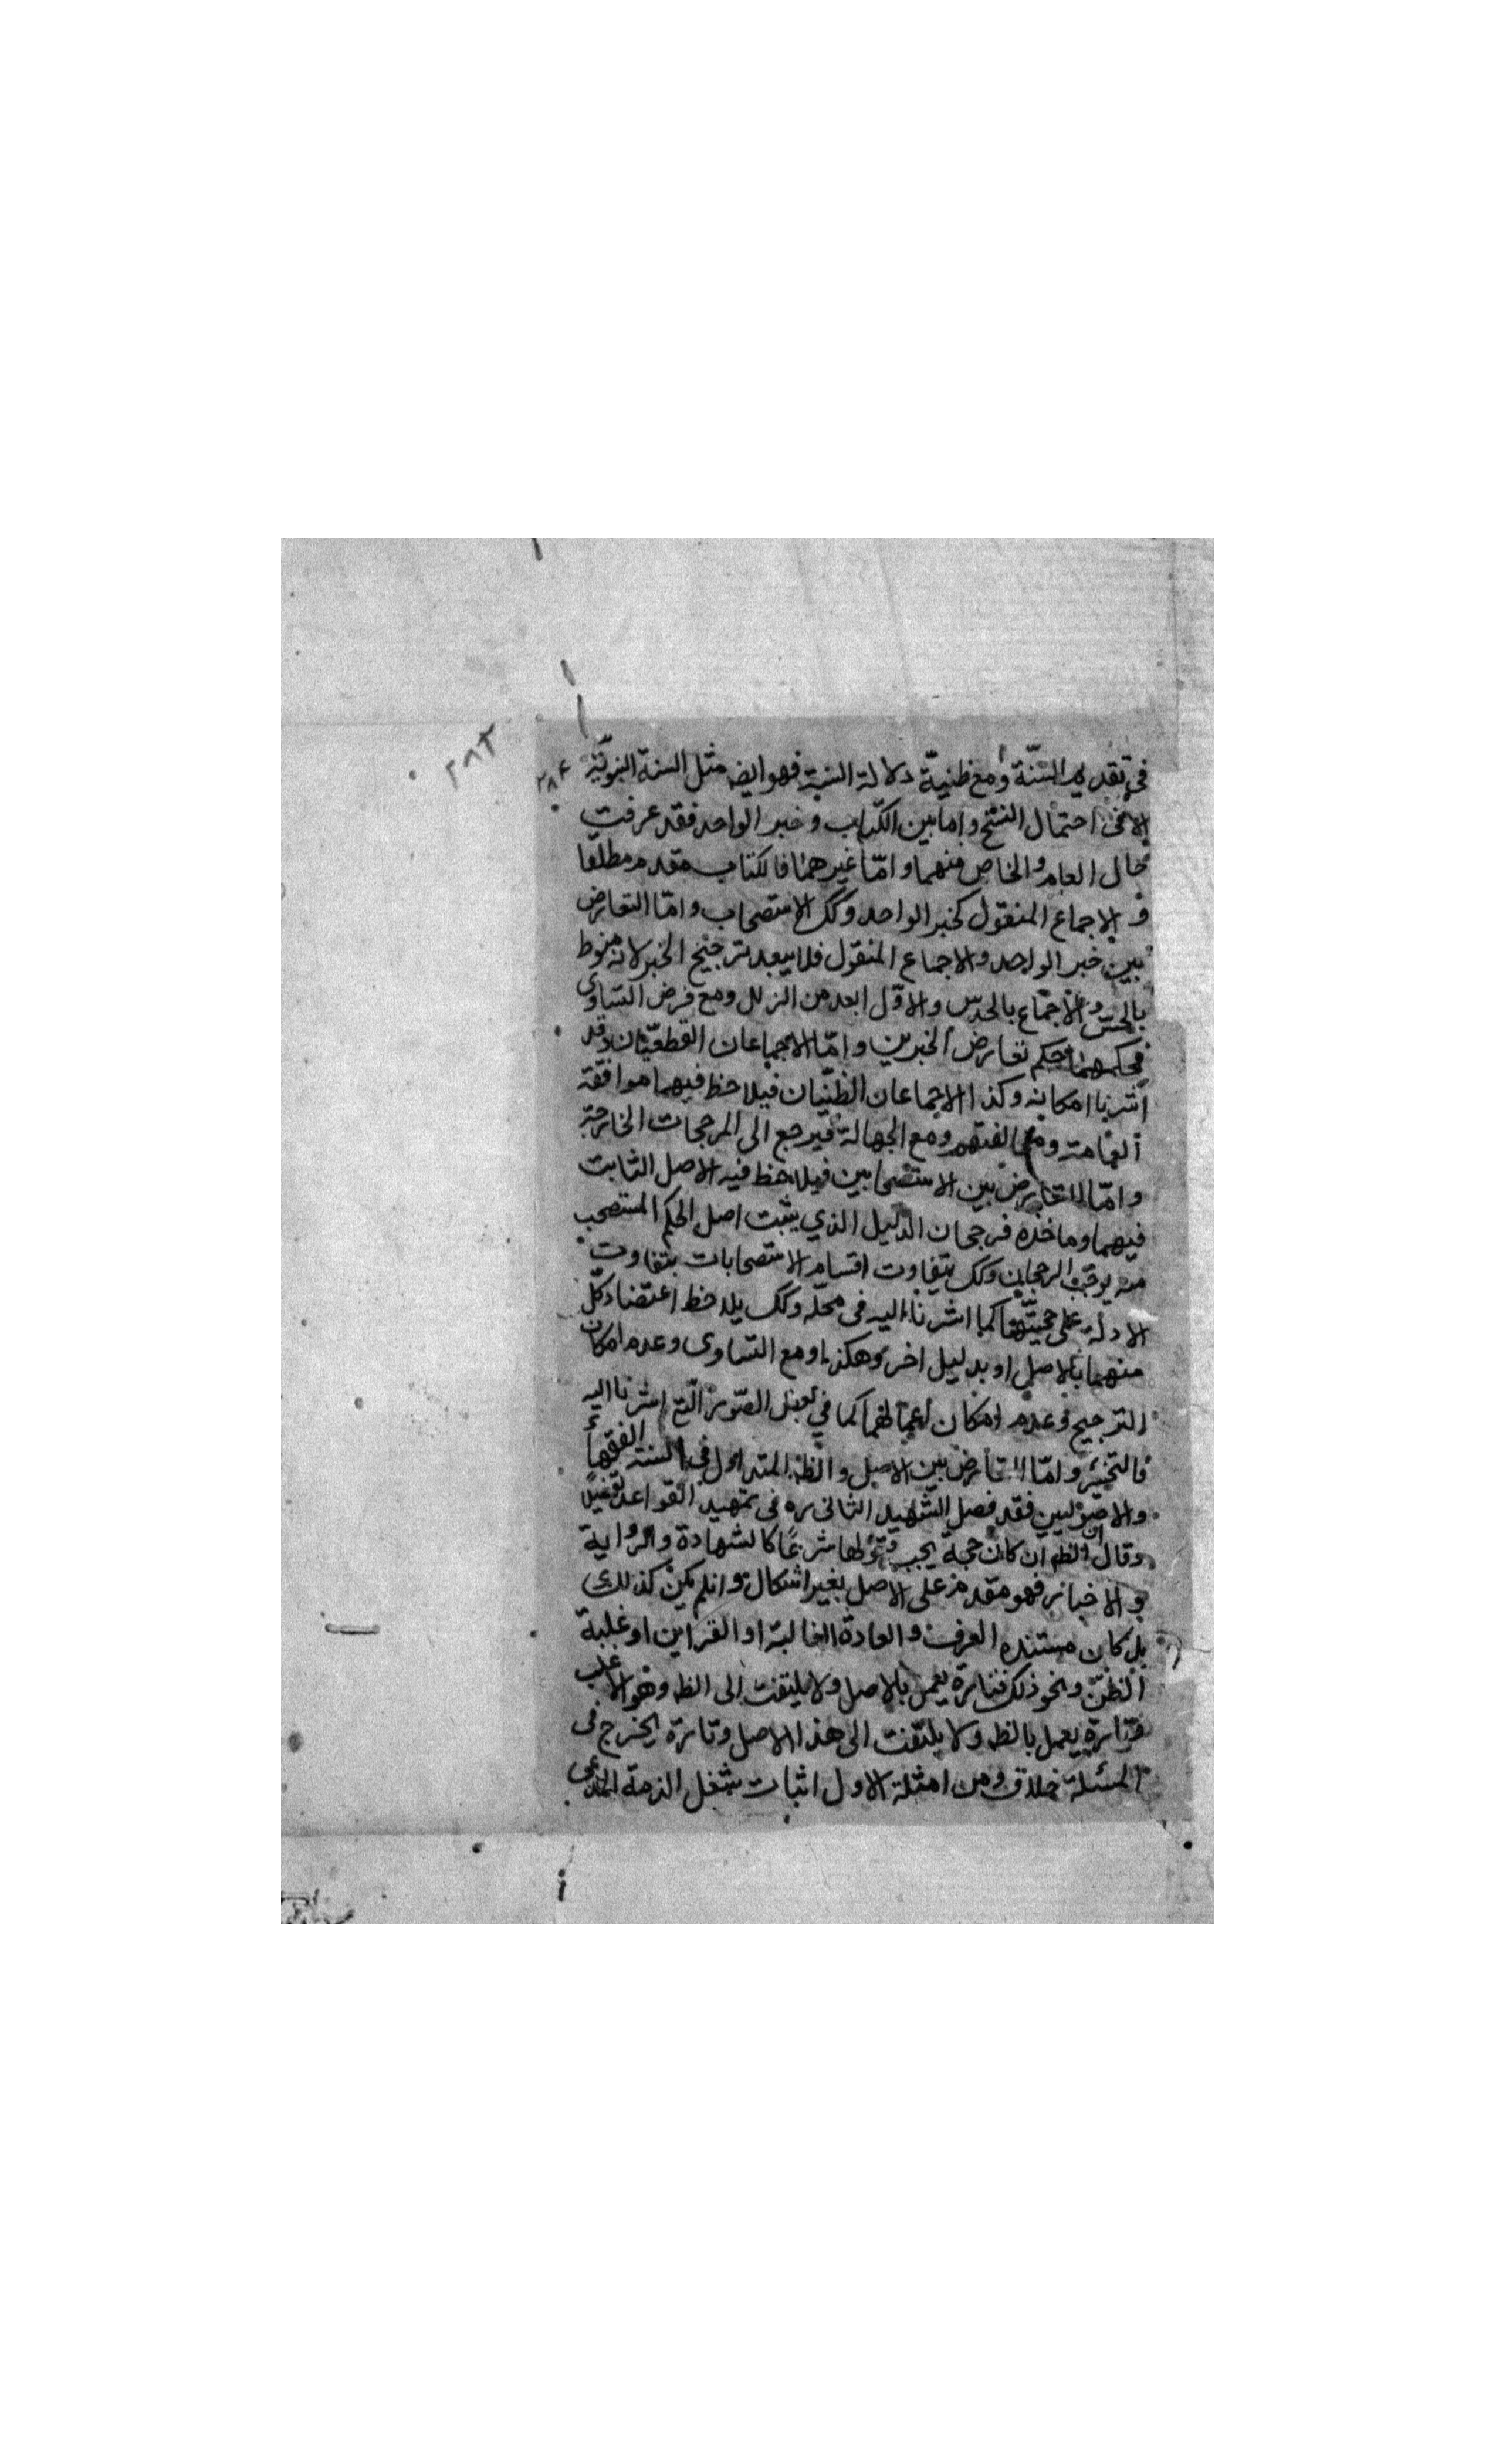 ٢٨٣
٢٨٤
في تقديم السنّة ومع ظنيّة دلالة السنة فهو ايضا مثل السنة النبويّة
الا في احتمال النسخ واما بين الكتاب وخبر الواحد فقد عرفت
حال العام والخاص منهما وامّا غيرهما فالكتاب مقدم مطلقا
و الاجماع المنقول كخبر الواحد وكك الاستصحاب وامّا التعارض
بين خبر الواحد والاجماع المنقول فلا يبعد ترجيح الخبر لانه منوط
بالحسّ والاجماع بالحدس والاوّل ابعد من الزلل ومع فرض التساوى
فحكمهما حكم تعارض الخبرين وامّا الاجماعان القطعيّان وقد
اشرنا امكانه وكذا الاجماعان الظنّيان فيلاحظ فيهما موافقة
العامة ومخالفتهم ومع الجهالة فيرجع الى المرجحات الخارجة
وامّا التعارض بين الاستصحابين فيلاحظ فيه الاصل الثابت
فيهما وماخذه فرجحان الدليل الذي يثبت اصل الحكم المستصحب
منه يوجب الرجحان وكك يتفاوت اقسام الاستصحابات بتفاوت
الادلة على حجيّتها كما اشرنا اليه في محلّه وكك يلاحظ اعتضاد كلّ
منهما بالاصل او بدليل اخر وهكذا ومع التساوى وعدم امكان
الترجيح وعدم امكان اعمالهما كما في بعض الصّور الّتي اشرنا اليه
فالتخيير وامّا التعارض بين الاصل والظه المتداول في السنة الفقهاء
والاصوليين فقد فصل الشهيد الثاني ره في تمهيد القواعد تفصيلًا
وقال ان الظه ان كان حجة يجب قبولها شرعًا كالشهادة والرواية
و الاخبار فهو مقدم على الاصل بغير اشكال وانلم يكن كذلك
بل كان مستنده العرف والعادة الغالبة او القراين او غلبة
الظنّ ونحو ذلك فتارة يعمل بالاصل ولا يلتفت الى الظه وهو الاغلب
وتارة يعمل بالظه ولا يلتفت الى هذا الاصل وتارة يخرج في
المسئلة خلاف ومن امثلة الاول اثبات شغل الذمة المدعى